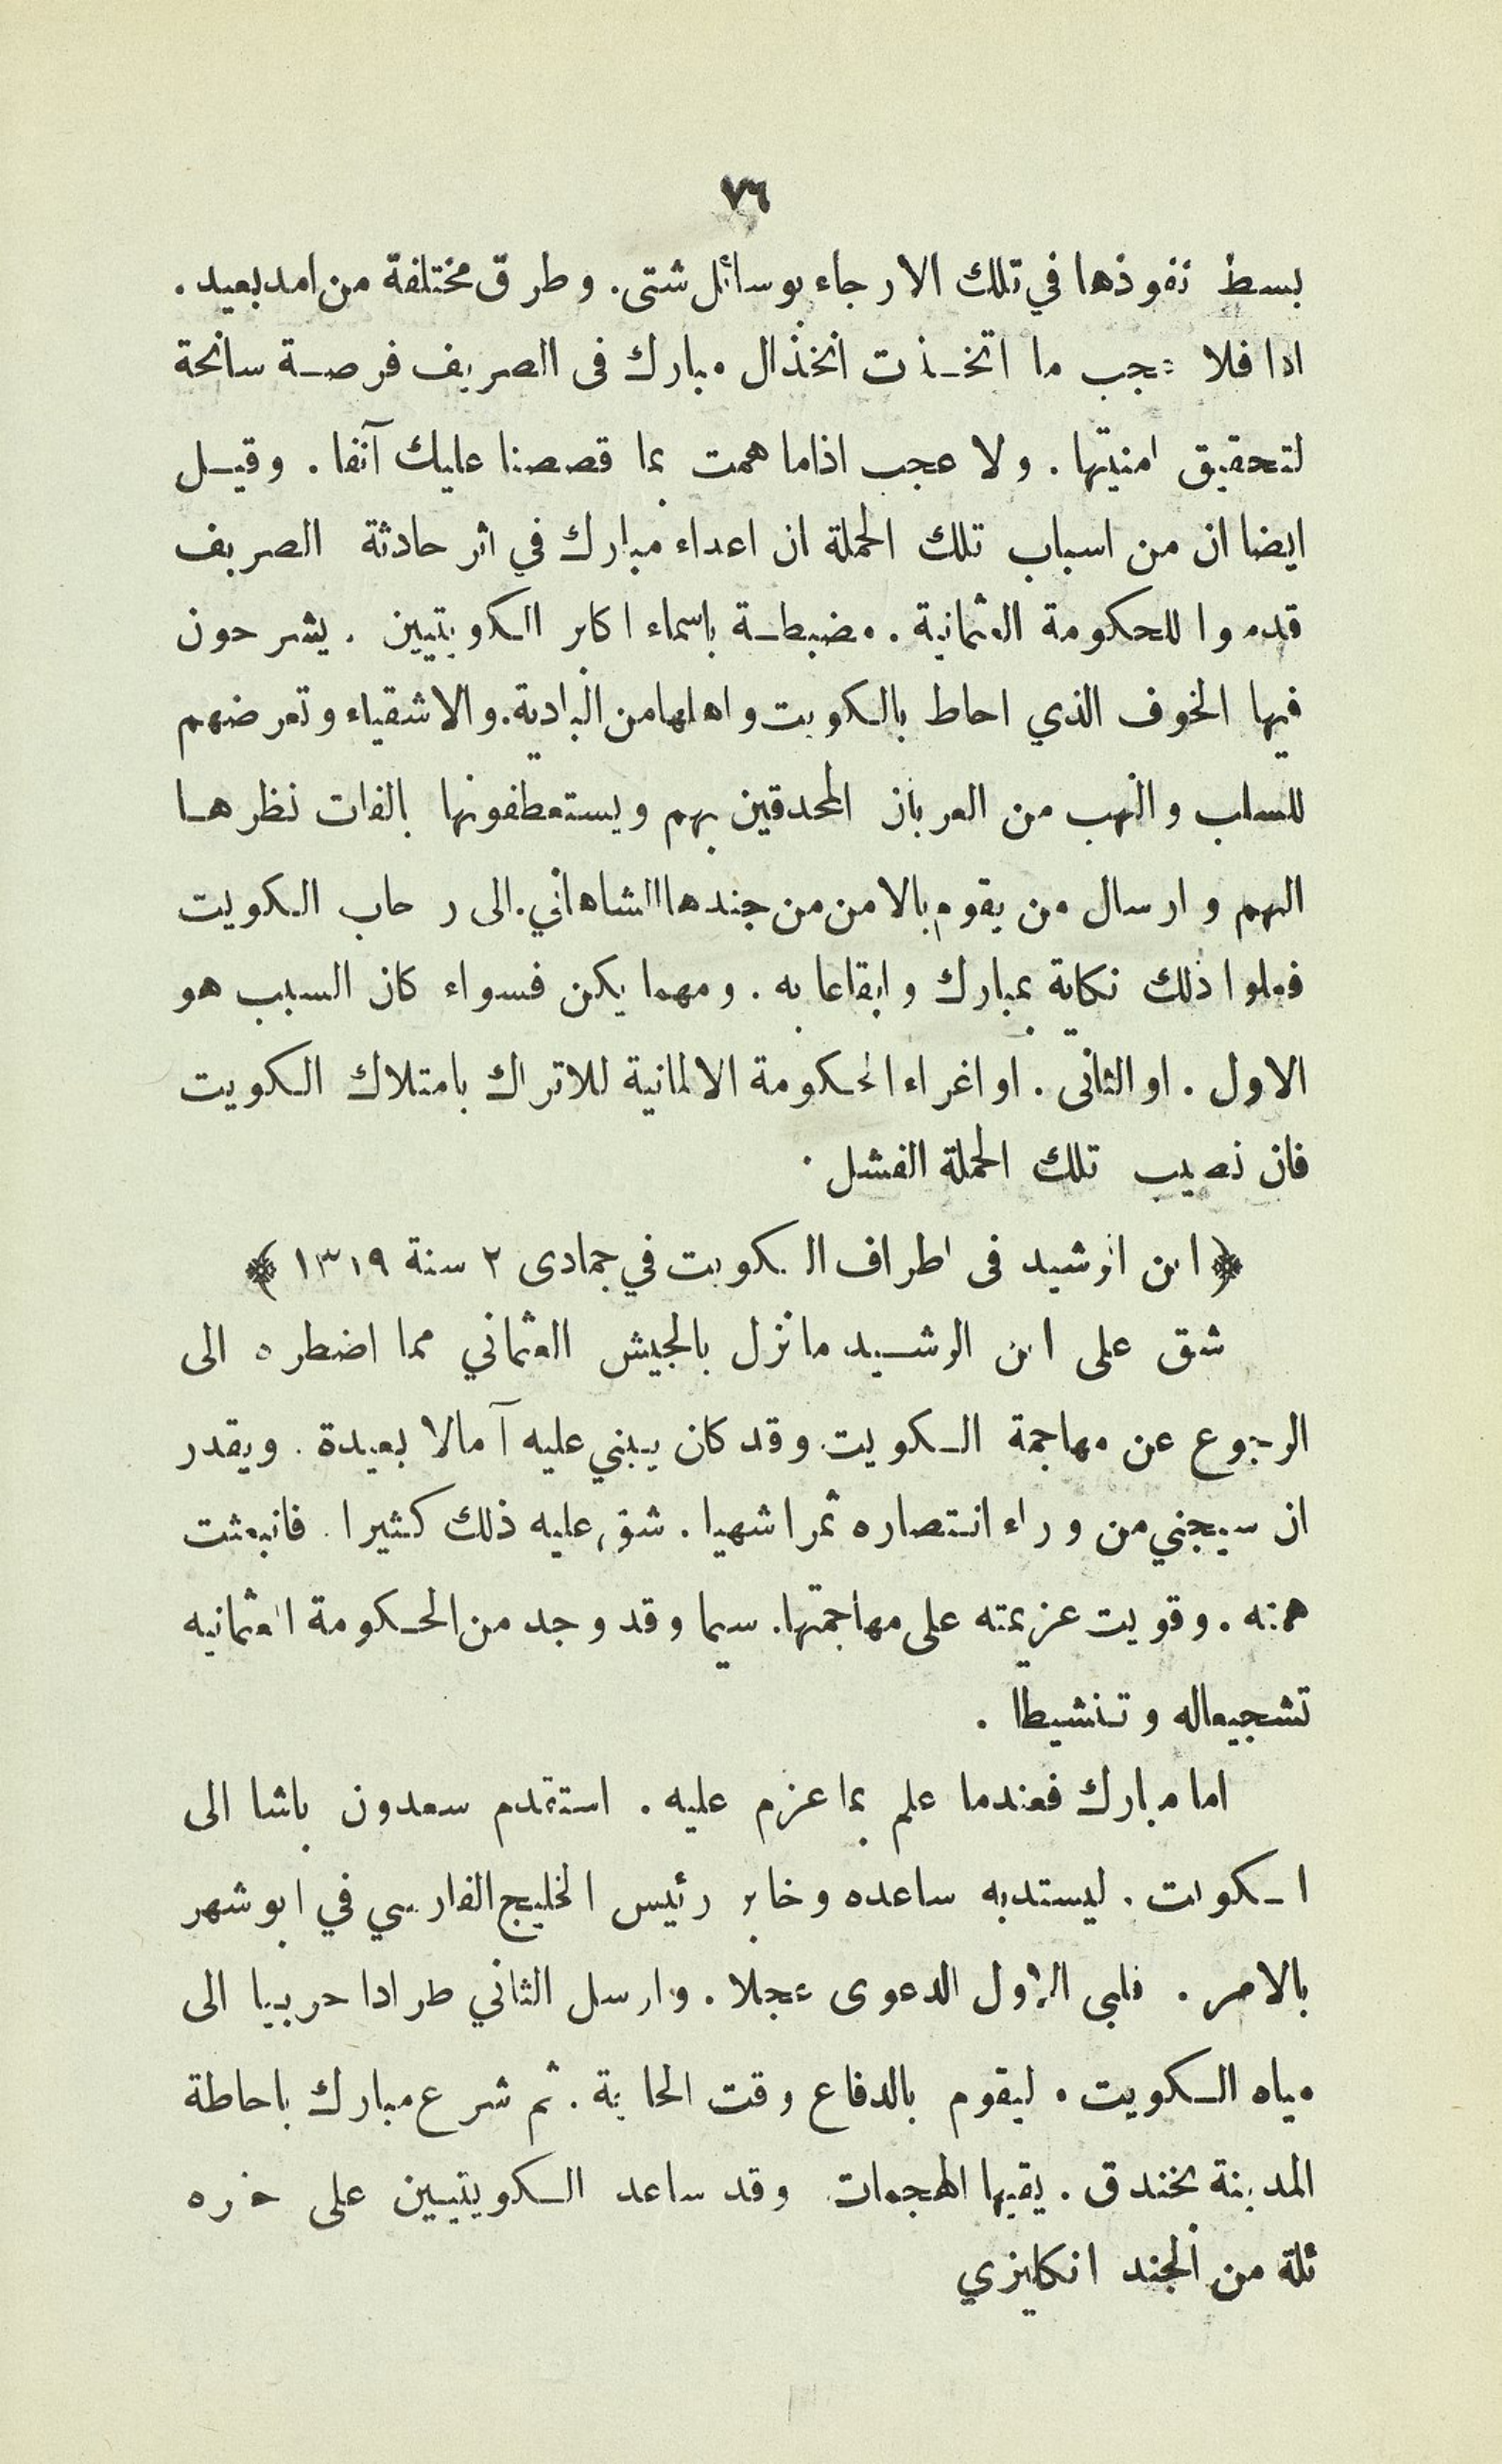 ٧٦
بسط نفوذها في تلك الارجاء بوسائل شتى. وطرق مختلفة من امد بعيد.
اذا فلا عجب ما اتخذت انخذال مبارك فى الصريف فرصة سانحة
لتحقيق امنيتها. ولا عجب اذاما همت بما قصصنا عليك آنفا. وقيل
ايضا ان من اسباب تلك الحملة ان اعداء مبارك في اثر حادثة الصريف
قدموا للحكومة العثمانية. مضبطة باسماء اكابر الكويتيين. يشرحون
فيها الخوف الذي احاط بالكويت واهلها من البادية. والاشقياء وتعرضهم
للسلب والنهب من العربان المحدقين بهم ويستعطفونها بالفات نظرها
اليهم وارسال من يقوم بالامن من جندها الشاهاني. الى رحاب الكويت
فعلوا ذلك نكاية بمبارك وايقاعا به. ومهما يكن فسواء كان السبب هو
الاول. او الثانى. او اغراء الحكومة الالمانية للاتراك بامتلاك الكويت
فان نصيب تلك الحملة الفشل.
﴿ ابن الرشيد فى اطراف الكويت في جمادى ٢ سنة ١٣١٩ ﴾
شق على ابن الرشيد ما نزل بالجيش العثماني مما اضطره الى
الرجوع عن مهاجمة الكويت وقد كان يبني عليه آمالا بعيدة. ويقدر
ان سيجني من وراء انتصاره ثمرا شهيا. شق عليه ذلك كثيرا. فانبعثت
همته. وقويت عزيمته على مهاجمتها. سيما وقد وجد من الحكومة العثمانيه
تشجيعاله وتنشيطا.
اما مبارك فعندما علم بما عزم عليه. استقدم سعدون باشا الى
الكويت. ليستد به ساعده وخابر رئيس الخليج الفارسي في ابو شهر
بالامر. فلبى الاول الدعوى عجلا. وارسل الثاني طرادا حربيا الى
مياه الكويت. ليقوم بالدفاع وقت الحاجة. ثم شرع مبارك باحاطة
المدينة بخندق. يقيها الهجمات وقد ساعد الكويتيين على حفره
ثلة من الجند انكليزي